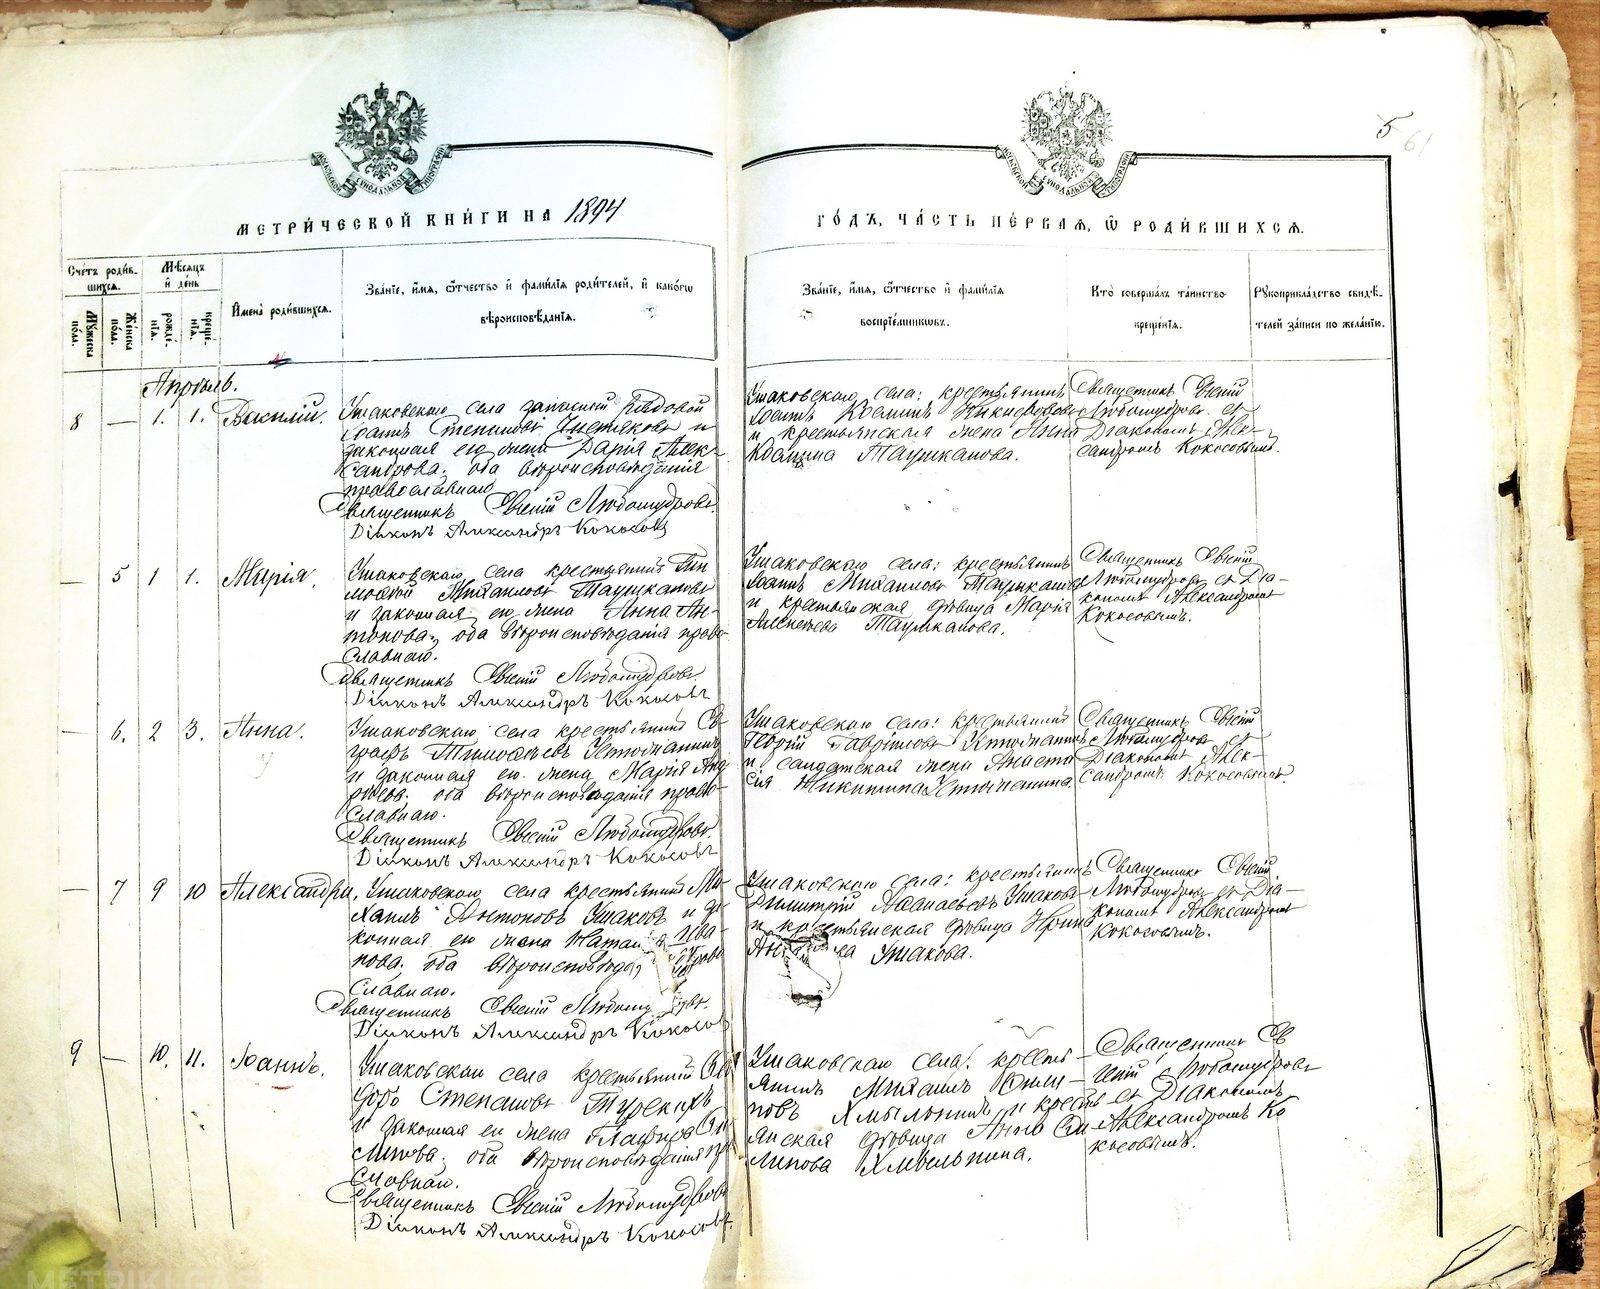 5
61
МОСКОВСКОЙ СУНОДАЛЬНОЙ ТИПОГРАФІИ
МОСКОВСКОЙ СУНОДАЛЬНОЙ ТИПОГРАФІИ
МЕТРИ́ЧЕСКОЙ КНИ́ГИ НА 1894
ГО́ДЪ, ЧА́СТЬ ПЕ́РВАЯ, Ѽ РОДИ́ВШИХСЯ.
Сче́тъ роди́в-
шихся.
Мꙋ́жеска по́ла.
Же́нска по́ла.
Мѣ́сяцъ
и҆ де́нь
рожде́-
нїя.
креще́-
нїя.
И҆мена̀ роди́вшихся.
Зва́нїе, и҆́мя, ѻ҆́тчество и҆ фами́лїя роди́телей, и҆ како́гѡ
вѣроисповѣ́данїя.
Зва́нїе, и҆́мя, ѻ҆́тчество и҆ фами́лїя
воспрїе́мникѡвъ.
Кто̀ соверша́лъ та́инство
креще́нїя.
Рꙋкоприкла́дство свидѣ́-
телей за́писи по жела́нїю.
Апрѣль.
8 — 1. 1. Василій.
Ушаковскаго села запасный рядовой
Іоаннъ Степановъ и
законная его жена Дарія Алек-
сандрова; оба вѣроисповѣданія
православнаго
Священникъ Евгеній Любомудровъ.
Діаконъ Александръ Кокосовъ
Ушаковскаго села: крестьянинъ
Іоаннъ Козминъ
и крестьянская жена Анна
Козмина Таушканова.
Священникъ Евгеній
Любомудровъ съ
Діакономъ Алек-
сандромъ Кокосовымъ.
— 5 1 1. Марія.
Ушаковскаго села крестьянинъ Ти-
мофей Михаиловъ Таушкановъ
и законная его жена Анна Ан-
тонова; оба вѣроисповѣданія право-
славнаго.
Священникъ Евгеній Любомудровъ.
Діаконъ Александръ Кокосовъ
Ушаковскаго села: крестьянинъ
Іоаннъ Михаиловъ Таушкановъ
и крестьянская дѣвица Марія
Алексѣева Таушканова.
Священникъ Евгеній
Любомудровъ съ Діа-
кономъ Александромъ
Кокосовымъ.
— 6. 2 3. Анна.
Ушаковскаго села крестьянинъ Ев-
графъ Тимофеевъ Устюжанинъ
и законная его жена Марія Анд-
реева; оба вѣроисповѣданія право-
славнаго.
Священникъ Евгеній Любомудровъ.
Діаконъ Александръ Кокосовъ
Ушаковскаго села: крестьянинъ
Георгій Гавріиловъ Устюжанинъ
и солдатская жена Анаста-
сія Никитина Устюжанина.
Священникъ Евгеній
Любомудровъ съ
Діакономъ Алек-
сандромъ Кокосовымъ.
— 7 9 10 Александра.
Ушаковскаго села крестьянинъ Ми-
хаилъ Антоновъ Ушаковъ и за-
конная его жена Наталія Ива-
нова; оба
славнаго.
Священникъ Евгеній
Діаконъ Александръ Кокосовъ
Ушаковскаго села: крестьянинъ
Димитрій Аѳанасьевъ Ушаковъ
и крестьянская дѣвица Ирина
Ушакова.
Священникъ Евгеній
Любомудровъ съ Діа-
кономъ Александромъ
Кокосовымъ.
9 — 10. 11. Іоаннъ.
Ушаковскаго села крестьянинъ Ѳео-
доръ Степановъ
и законная его жена Глафира Фи-
липова; оба вѣроисповѣданія пра
славнаго.
Священникъ Евгеній Любомудровъ
Діаконъ Александръ Кокосовъ.
Ушаковскаго села: кресть-
янинъ Михаилъ Фили-
повъ Хмылнинъ и кресть-
янская дѣвица Анна Фи-
липова Хмылнина.
Священникъ Ев
геній Любомудровъ
съ Діакономъ
Александромъ Ко
косовымъ.